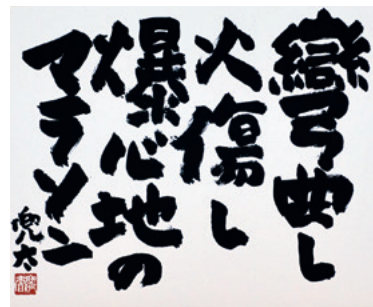 彎曲し
火傷し
爆心地の
マラソン
兜太